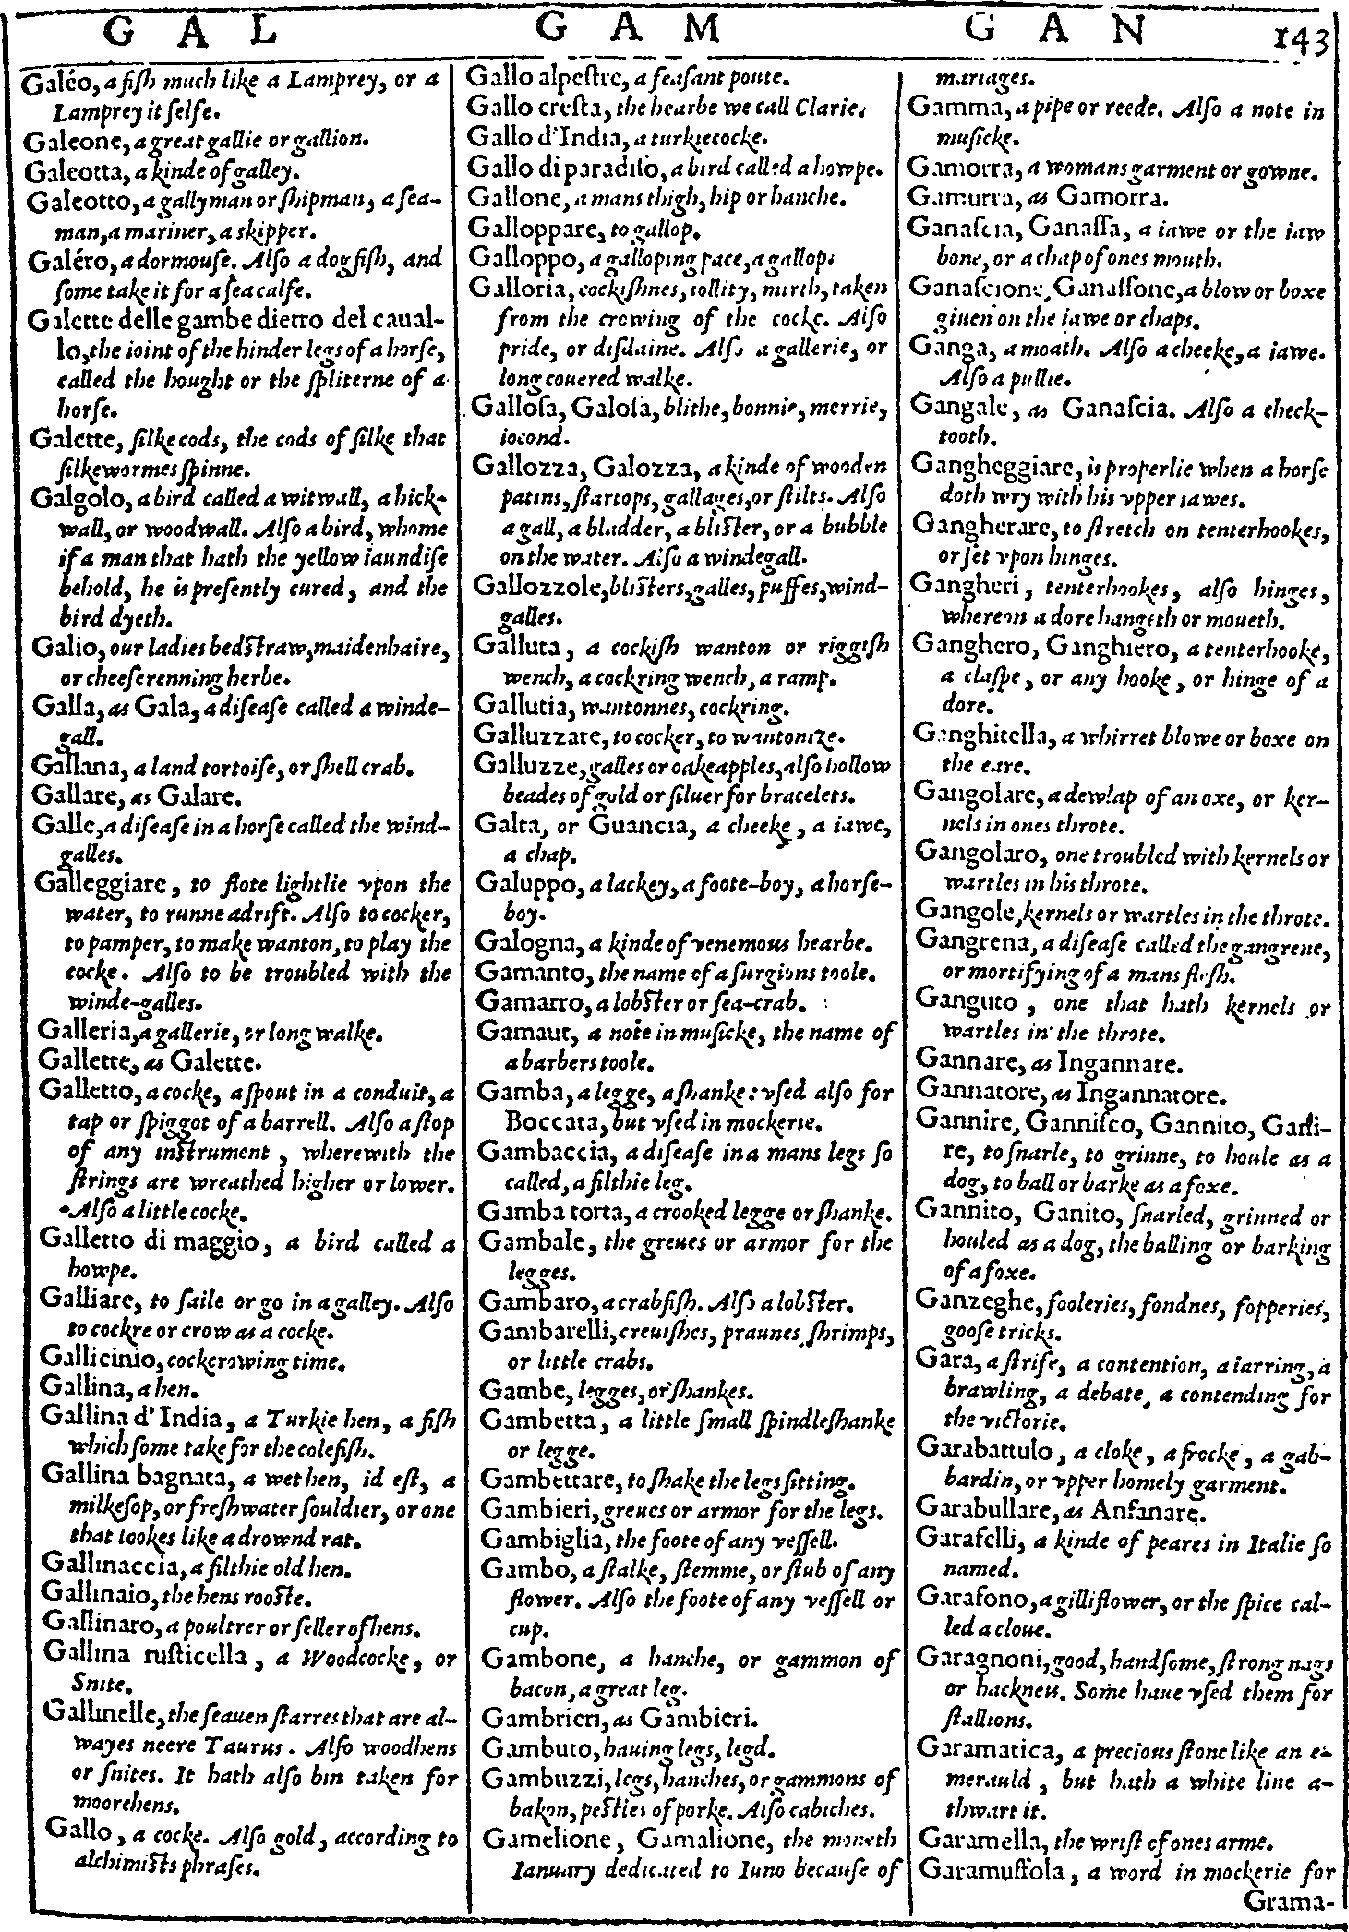 GAL GAM GAN 143
Galéo, a fish much like a Lamprey, or a
Lamprey it selfe.
Galeone, a great gallie or gallion.
Galeotta, a kinde of galley.
Galeotto, a gallyman or shipman, a sea-
man, a mariner, a skipper.
Galéro, a dormouse. Also a dogfish, and
some take it for a sea calfe.
Galette delle gambe dietro del caual-
lo, the ioint of the hinder legs of a horse,
called the hought or the spliterne of a
horse.
Galette, silke cods, the cods of silke that
silkewormes spinne.
Galgolo, a bird called a witwall, a hick-
wall, or woodwall. Also a bird, whome
if a man that hath the yellow iaundise
behold, he is presently cured, and the
bird dyeth.
Galio, our ladies bedstraw, maidenhaire,
or cheese renning herbe.
Galla, as Gala, a disease called a winde-
gall.
Gallana, a land tortoise, or shell crab.
Gallare, as Galare.
Galle, a disease in a horse called the wind-
galles.
Galleggiare, to flote lightlie vpon the
water, to runne adrift. Also to cocker,
to pamper, to make wanton, to play the
cocke. Also to be troubled with the
winde-galles.
Galleria, a gallerie, or long walke.
Gallette, as Galette.
Galletto, a cocke, a spout in a conduit, a
tap or spiggot of a barrell. Also a stop
of any instrument, wherewith the
strings are wreathed higher or lower.
Also a little cocke.
Galletto di maggio, a bird called a
howpe.
Galliare, to saile or go in a galley. Also
to cockre or crow as a cocke.
Gallicinio, cockcrowing time.
Gallina, a hen.
Gallina d'India, a Turkie hen, a fish
which some take for the colefish.
Gallina bagnata, a wet hen, id est, a
milkesop, or freshwater souldier, or one
that lookes like a drownd rat.
Gallinaccia, a filthie old hen.
Gallinaio, the hens rooste.
Gallinaro, a poultrer or seller of hens.
Gallina rusticella, a Woodcocke, or
Snite.
Gallinelle, the seauen starres that are al-
wayes neere Taurus. Also woodhens
or snites. It hath also bin taken for
moorehens.
Gallo, a cocke. Also gold, according to
alchimists phrases.
Gallo alpestre, a feasant poute.
Gallo cresta, the hearbe we call Clarie.
Gallo d'India, a turkiecocke.
Gallo di paradiso, a bird called a howpe.
Gallone, a mans thigh, hip or hanche.
Galloppare, to gallop.
Galloppo, a galloping pace, a gallop.
Galloria, cockishnes, iollity, mirth, taken
from the crowing of the cocke. Also
pride, or disdaine. Also a gallerie, or
long couered walke.
Gallosa, Galosa, blithe, bonnie, merrie,
iocond.
Gallozza, Galozza, a kinde of wooden
patins, startops, gallages, or stilts. Also
a gall, a bladder, a blister, or a bubble
on the water. Also a windegall.
Gallozzole, blisters, galles, puffes, wind-
galles.
Galluta, a cockish wanton or riggish
wench, a cockring wench, a ramp.
Gallutia, wantonnes, cockring.
Galluzzare, to cocker, to wantonize.
Galluzze, galles or oakeapples, also hollow
beades of gold or siluer for bracelets.
Galta, or Guancia, a cheeke, a iawe,
a chap.
Galuppo, a lackey, a foote-boy, a horse-
boy.
Galogna, a kinde of venemous hearbe.
Gamanto, the name of a surgions toole.
Gamarro, a lobster or sea-crab.
Gamaut, a note in musicke, the name of
a barbers toole.
Gamba, a legge, a shanke: vsed also for
Boccata, but vsed in mockerie.
Gambaccia, a disease in a mans legs so
called, a filthie leg.
Gamba torta, a crooked legge or shanke.
Gambale, the greues or armor for the
legges.
Gambaro, a crabfish. Also a lobster.
Gambarelli, creuishes, praunes, shrimps,
or little crabs.
Gambe, legges, or shankes.
Gambetta, a little small spindleshanke
or legge.
Gambettare, to shake the legs sitting.
Gambieri, greues or armor for the legs.
Gambiglia, the foote of any vessell.
Gambo, a stalke, stemme, or stub of any
flower. Also the foote of any vessell or
cup.
Gambone, a hanche, or gammon of
bacon, a great leg.
Gambrieri, as Gambieri.
Gambuto, hauing legs, legd.
Gambuzzi, legs, hanches, or gammons of
bakon, pesties of porke. Also cabiches.
Gamelione, Gamalione, the moneth
Ianuary dedicated to Iuno because of
mariages.
Gamma, a pipe or reede. Also a note in
musicke.
Gamorra, a womans garment or gowne.
Gamurra, as Gamorra.
Ganascia, Ganassa, a iawe or the iaw
bone, or a chap of ones mouth.
Ganascione, Ganassone, a blow or boxe
giuen on the iawe or chaps.
Ganga, a moath. Also a cheeke, a iawe.
Also a pullie.
Gangale, as Ganascia. Also a cheek-
tooth.
Gangheggiare, is properlie when a horse
doth wry with his vpper iawes.
Gangherare, to stretch on tenterhookes,
or set vpon hinges.
Gangheri, tenterhookes, also hinges,
whereon a dore hangeth or moueth.
Ganghero, Ganghiero, a tenterhooke,
a claspe, or any hooke, or hinge of a
dore.
Ganghitella, a whirret blowe or boxe on
the eare.
Gangolare, a dewlap of an oxe, or ker-
nels in ones throte.
Gangolaro, one troubled with kernels or
wartles in his throte.
Gangole, kernels or wartles in the throte.
Gangrena, a disease called the gangrene,
or mortifying of a mans flesh.
Ganguto, one that hath kernels or
wartles in the throte.
Gannare, as Ingannare.
Gannatore, as Ingannatore.
Gannire, Gannisco, Gannito, Gaññi-
re, to snarle, to grinne, to houle as a
dog, to ball or barke as a foxe.
Gannito, Ganito, snarled, grinned or
houled as a dog, the balling or barking
of a foxe.
Ganzeghe, fooleries, fondnes, fopperies,
goose tricks.
Gara, a strife, a contention, a iarring, a
brawling, a debate, a contending for
the victorie.
Garabattulo, a cloke, a frocke, a gab-
bardin, or vpper homely garment.
Garabullare, as Anfanare.
Garafelli, a kinde of peares in Italie so
named.
Garafono, a gilliflower, or the spice cal-
led a cloue.
Garagnoni, good, handsome, strong nags
or hackneis. Some haue vsed them for
stallions.
Garamatica, a precious stone like an e-
merauld, but hath a white line a-
thwart it.
Garamella, the wrist of ones arme.
Garamuffola, a word in mockerie for
Grama-